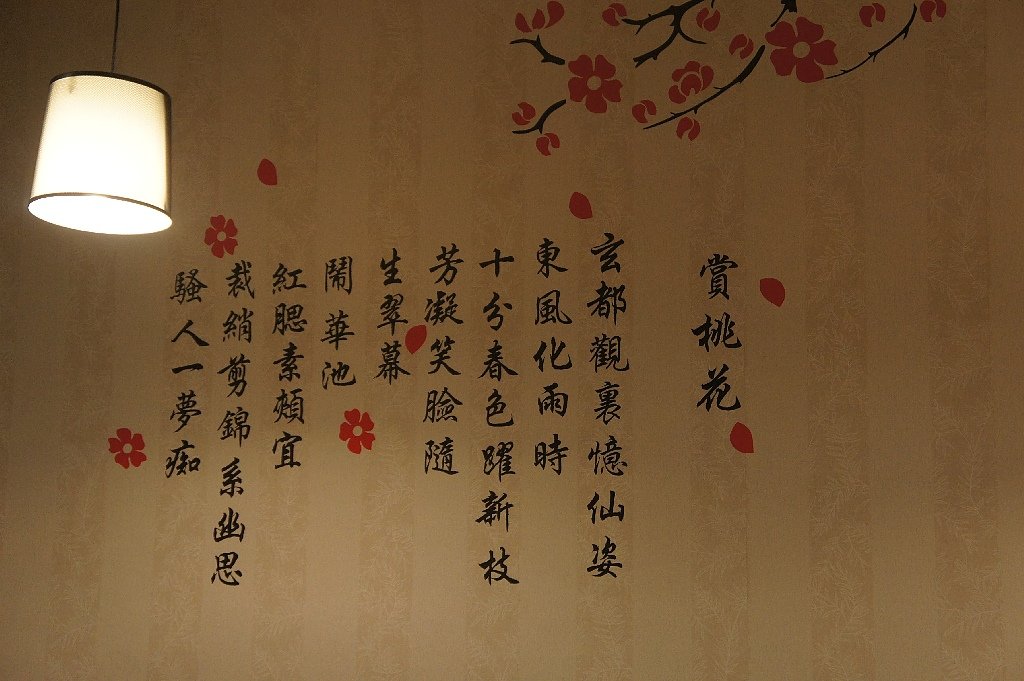 賞桃花
玄都觀裏憶仙姿
東風化雨時
十分春色躍新枝
芳凝笑臉隨
生翠幕
鬧華池
紅腮素頰宜
裁綃剪錦系幽思
騷人一夢痴